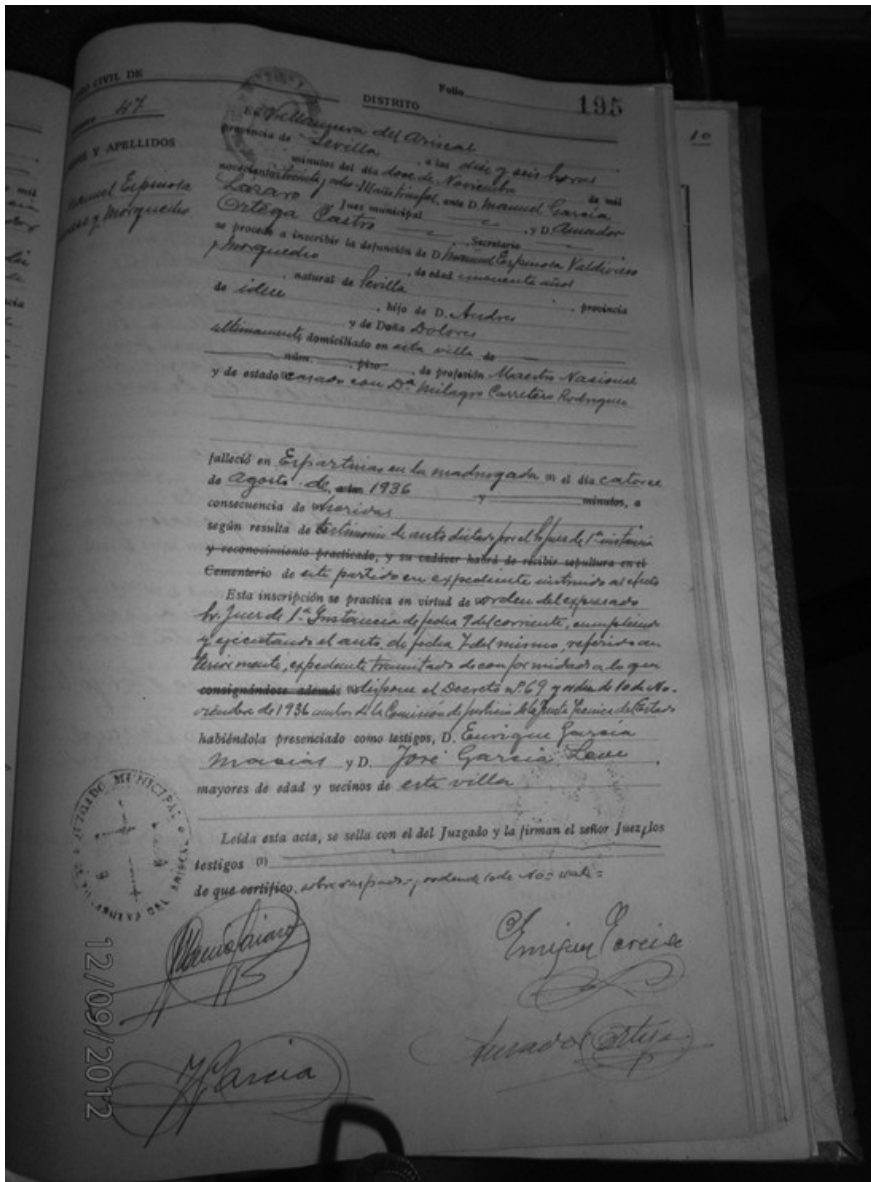 CIVIL DE
DISTRITO
Folio
195
47
Y APELLIDOS
Manuel Espinosa
y Morquecho
10
En Villanueva del Ariscal
provincia de Sevilla, a las diez y seis horas
minutos del día doce de Noviembre de mil
novecientos treinta y ocho III año triunfal, ante D. Manuel García
Lázaro Juez municipal, y D. Amador
Ortega Castro, Secretario
se procede a inscribir la defunción de D. Manuel Espinosa Valdivieso
y Morquecho, de edad cincuenta años
, natural de Sevilla, provincia
de idem, hijo de D. Andrés
y de Doña Dolores
ultimamente domiciliado en esta villa de
núm. piso, de profesión Maestro Nacional
y de estado casado con Dª Milagro Carretero Rodriguez
falleció en Espartinas en la madrugada en el día catorce
de Agosto de a las 1936 y minutos, a
consecuencia de heridas
según resulta de testimonio de auto dictado por el Sr Juez de 1ª instancia
y reconocimiento practicado, y su cadáver habrá de recibir sepultura en el
Cementerio de este partido en expediente instruido al efecto
Esta inscripción se practica en virtud de orden del expresado
Sr. Juez de 1ª Instancia de fecha 9 del corriente, cumpliendo
y ejecutando el auto, de fecha 7 del mismo, referido an
teriormente, expediente tramitado de conformidad a lo que
consignándose además dispone el Decreto nº 69 y orden de 10 de No-
viembre de 1936 ambos de la Comisión de Justicia de la Junta Tecnica del Estado
habiéndola presenciado como testigos, D. Enrique García
Macías y D. José García
mayores de edad y vecinos de esta villa
Leída esta acta, se sella con el del Juzgado y la firman el señor Juez, los
testigos (1)
de que certifico. sobre raspado=, orden de 10 de No= vale=
JUZGADO MUNICIPAL
Enrique García
Amador Ortega
J García
12/09/2012